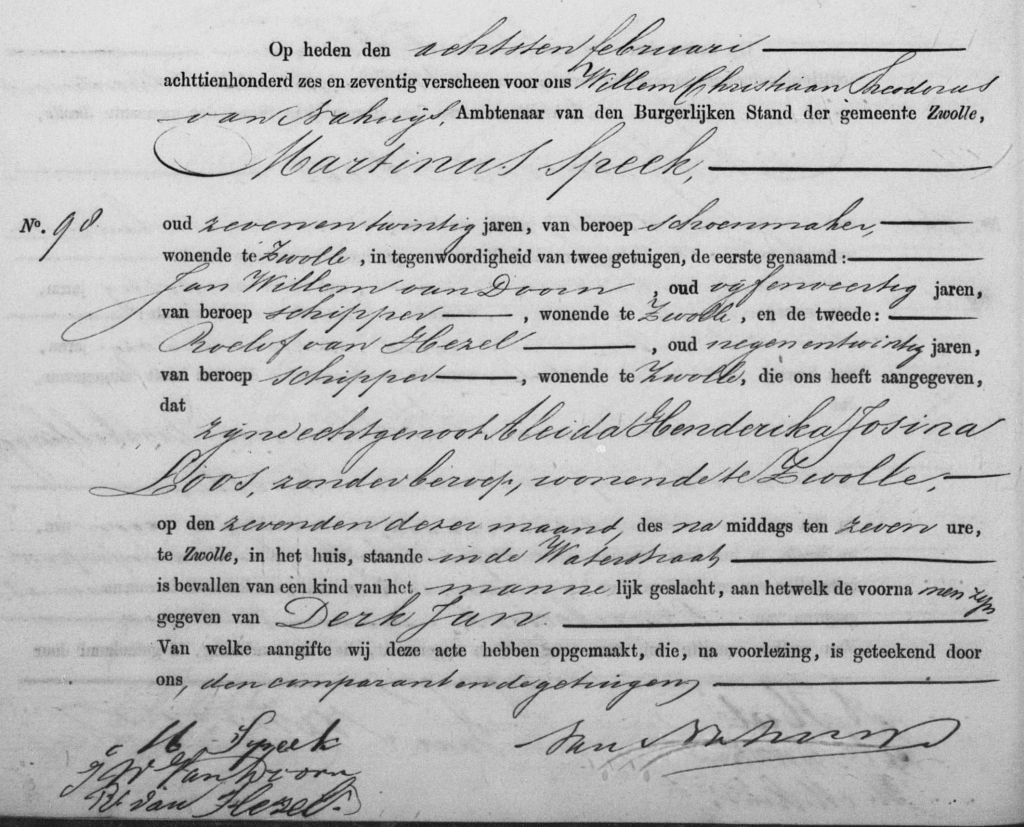 Op heden den achtsten februari
achttienhonderd zes en zeventig verscheen voor ons Willem Christiaan Theodorus
van Nahuijs, Ambtenaar van den Burgerlijken Stand der gemeente Zwolle,
Martinus Speek,
No. 98 oud zevenentwintig jaren, van beroep schoenmaker,
wonende te Zwolle, in tegenwoordigheid van twee getuigen, de eerste genaamd:
Jan Willem van Doorn, oud vijfenveertig jaren,
van beroep schipper, wonende te Zwolle, en de tweede:
Roelof van Hezel, oud negenentwintig jaren,
van beroep schipper, wonende te Zwolle, die ons heeft aangegeven,
dat
zijne echtgenoot Aleida Henderika Josina
Loos, zonder beroep, wonende te Zwolle,
op den zevenden dezer maand, des na middags ten zeven ure,
te Zwolle, in het huis, staande in de Waterstraat
is bevallen van een kind van het mannelijk geslacht, aan hetwelk de voornamen zijn
gegeven van Derk Jan.
Van welke aangifte wij deze acte hebben opgemaakt, die, na voorlezing, is geteekend door
ons, den comparant en de getuigen,
M Speek
van Nahuijs
J W van Doorn
R van Hezel